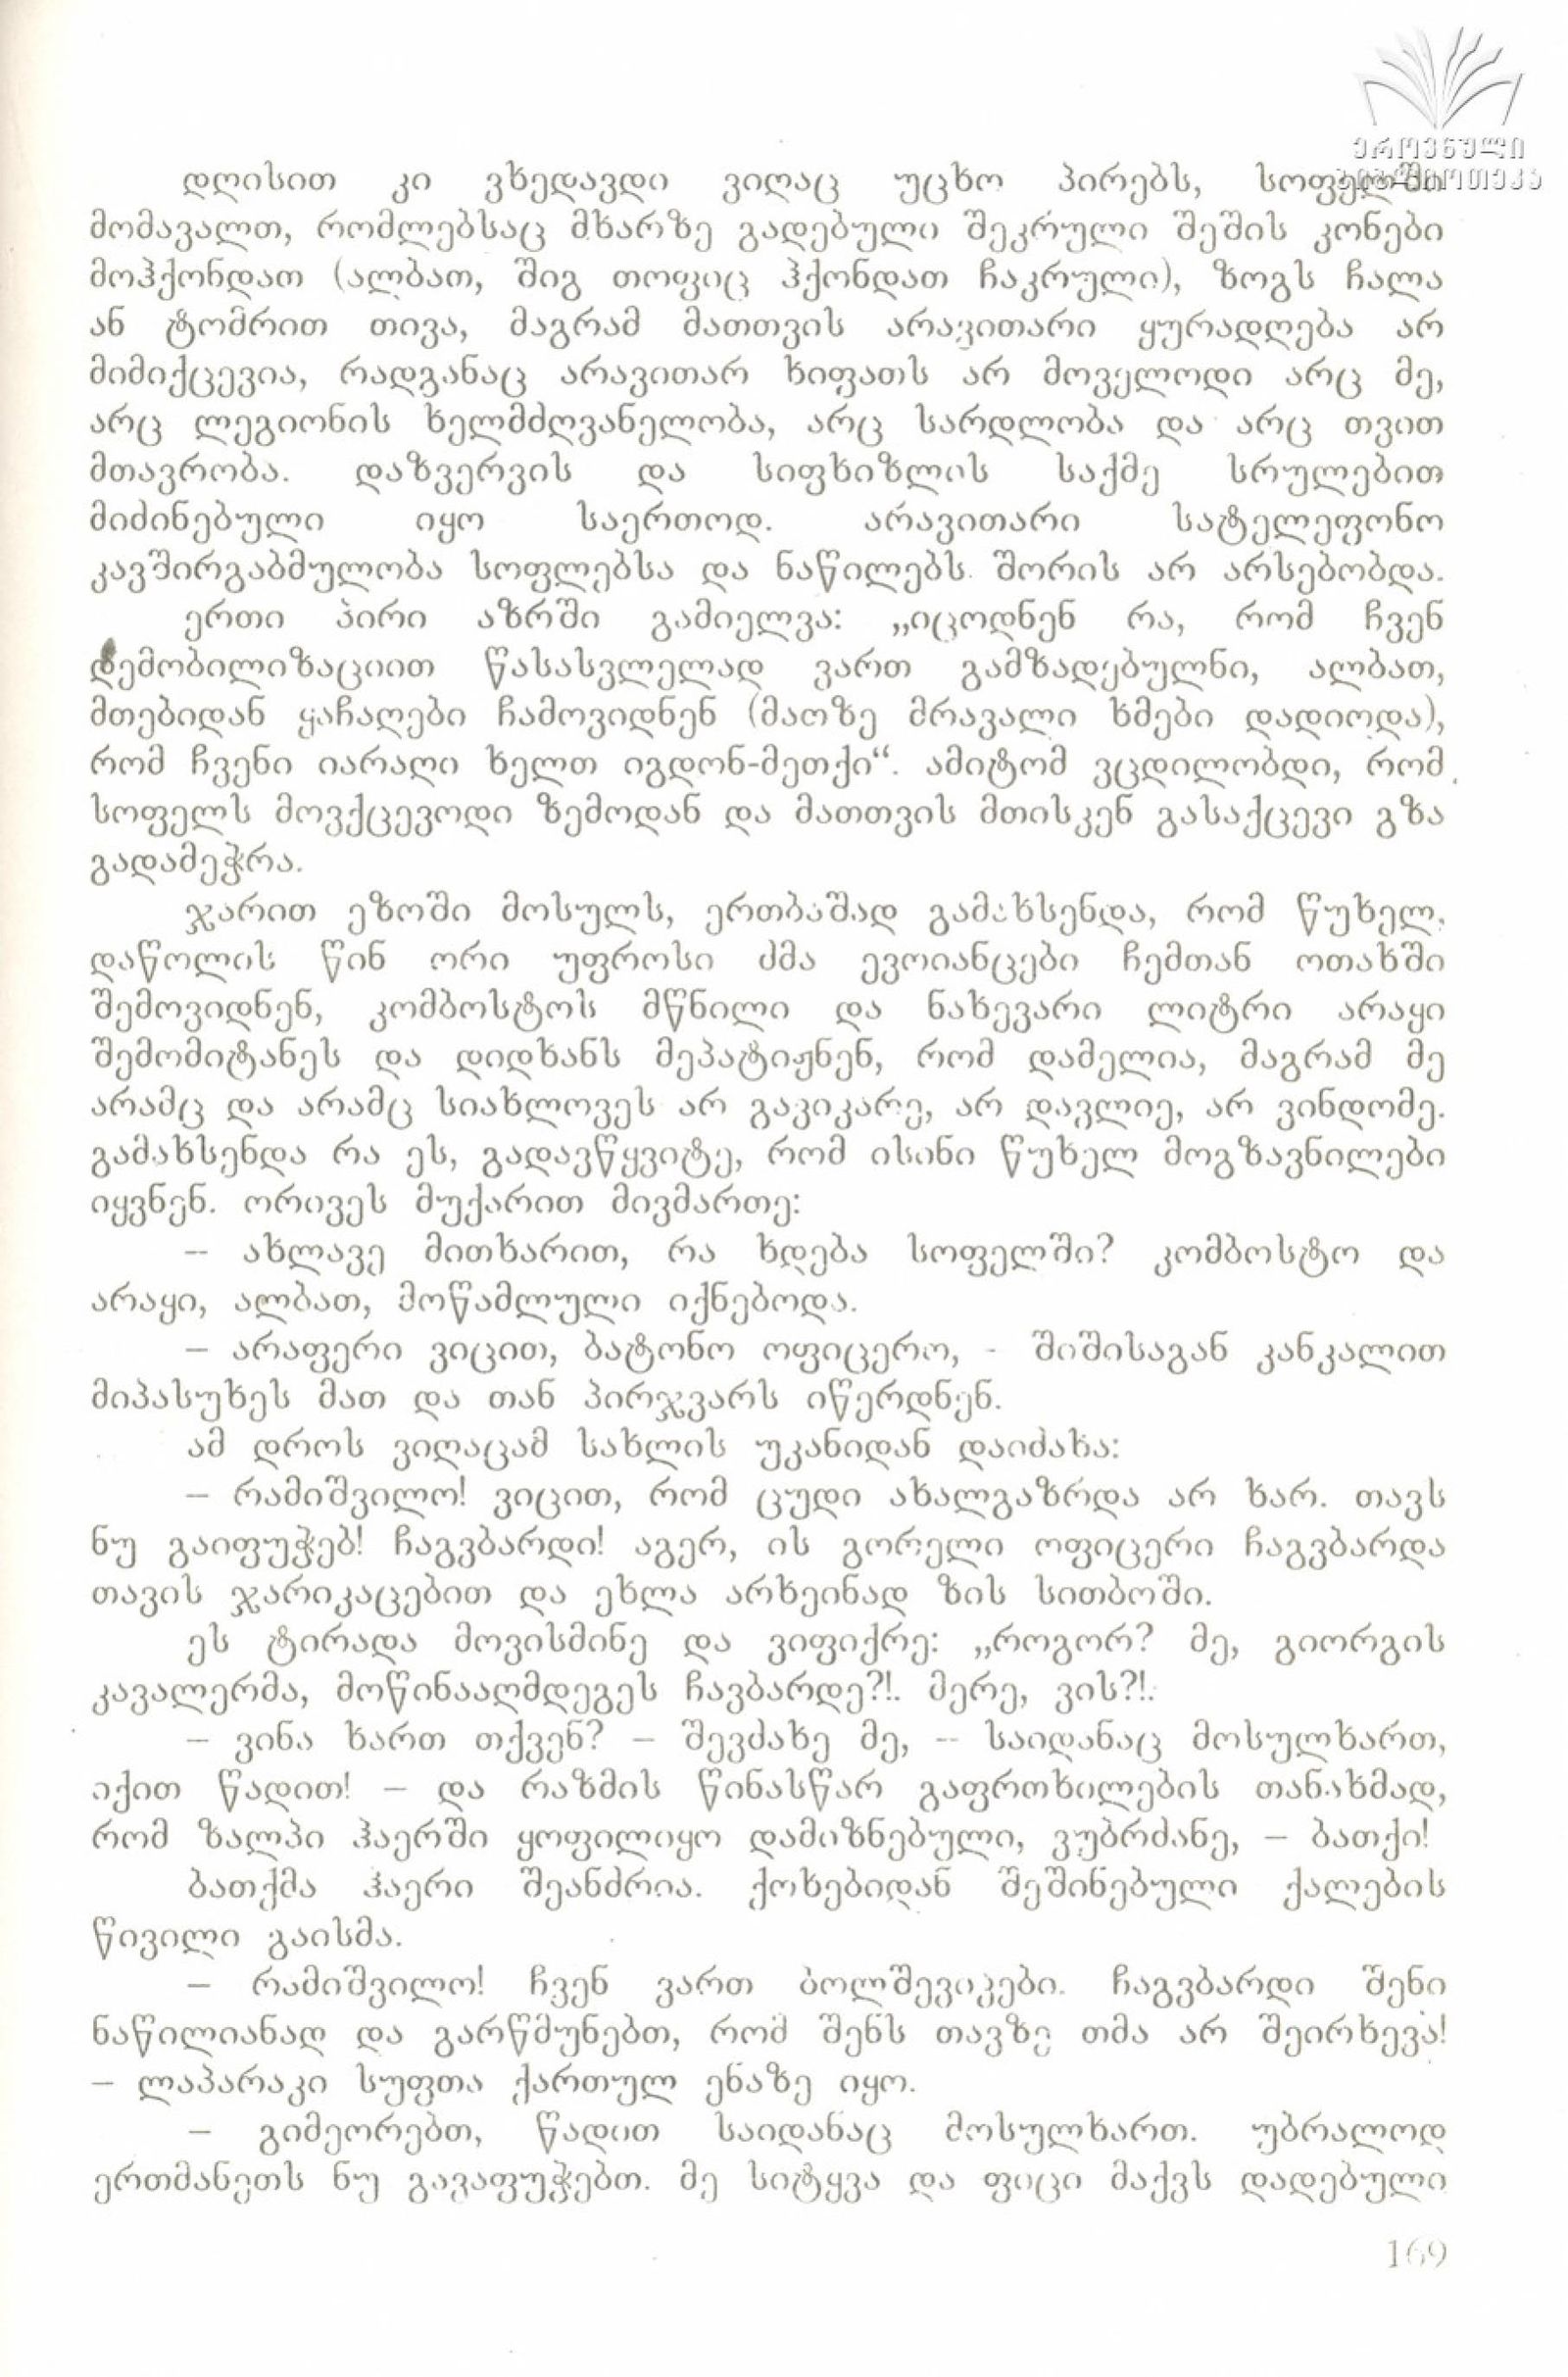 ეროვნული
ბიბლიოთეკა
დღისით კი ვხედავდი ვიღაც უცხო პირებს, სოფელში
მომავალთ, რომლებსაც მხარზე გადებული შეკრული შეშის კონები
მოჰქონდათ (ალბათ, შიგ თოფიც ჰქონდათ ჩაკრული), ზოგს ჩალა
ან ტომრით თივა, მაგრამ მათთვის არავითარი ყურადღება არ
მიმიქცევია, რადგანაც არავითარ ხიფათს არ მოველოდი არც მე,
არც ლეგიონის ხელმძღვანელობა, არც სარდლობა და არც თვით
მთავრობა. დაზვერვის და სიფხიზლის საქმე სრულებით
მიძინებული იყო საერთოდ. არავითარი სატელეფონო
კავშირგაბმულობა სოფლებსა და ნაწილებს შორის არ არსებობდა.
ერთი პირი აზრში გამიელვა: „იცოდნენ რა, რომ ჩვენ
დემობილიზაციით წასასვლელად ვართ გამზადებულნი, ალბათ,
მთებიდან ყაჩაღები ჩამოვიდნენ (მათზე მრავალი ხმები დადიოდა),
რომ ჩვენი იარაღი ხელთ იგდონ-მეთქი“. ამიტომ ვცდილობდი, რომ
სოფელს მოვქცეოდი ზემოდან და მათთვის მთისკენ გასაქცევი გზა
გადამეჭრა.
ჯარით ეზოში მოსულს, ერთბაშად გამახსენდა, რომ წუხელ,
დაწოლის წინ ორი უფროსი ძმა ევოიანცები ჩემთან ოთახში
შემოვიდნენ, კომბოსტოს მწნილი და ნახევარი ლიტრი არაყი
შემომიტანეს და დიდხანს მეპატიჟნენ, რომ დამელია, მაგრამ მე
არამც და არამც სიახლოვეს არ გავიკარე, არ დავლიე, არ ვინდომე.
გამახსენდა რა ეს, გადავწყვიტე, რომ ისინი წუხელ მოგზავნილები
იყვნენ. ორივეს მუქარით მივმართე:
– ახლავე მითხარით, რა ხდება სოფელში? კომბოსტო და
არაყი, ალბათ, მოწამლული იქნებოდა.
– არაფერი ვიცით, ბატონო ოფიცერო, - შიშისაგან კანკალით
მიპასუხეს მათ და თან პირჯვარს იწერდნენ.
ამ დროს ვიღაცამ სახლის უკანიდან დაიძახა:
– რამიშვილო! ვიცით, რომ ცუდი ახალგაზრდა არ ხარ. თავს
ნუ გაიფუჭებ! ჩაგვბარდი! აგერ, ის გორელი ოფიცერი ჩაგვბარდა
თავის ჯარიკაცებით და ეხლა არხეინად ზის სითბოში.
ეს ტირადა მოვისმინე და ვიფიქრე: „როგორ? მე, გიორგის
კავალერმა, მოწინააღმდეგეს ჩავბარდე?!. მერე, ვის?!.
– ვინა ხართ თქვენ? – შევძახე მე, – საიდანაც მოსულხართ,
იქით წადით! – და რაზმის წინასწარ გაფრთხილების თანახმად,
რომ ზალპი ჰაერში ყოფილიყო დამიზნებული, ვუბრძანე, – ბათქი!
ბათქმა ჰაერი შეანძრია. ქოხებიდან შეშინებული ქალების
წივილი გაისმა.
– რამიშვილო! ჩვენ ვართ ბოლშევიკები. ჩაგვბარდი შენი
ნაწილიანად და გარწმუნებთ, რომ შენს თავზე თმა არ შეირხევა!
– ლაპარაკი სუფთა ქართულ ენაზე იყო.
– გიმეორებთ, წადით საიდანაც მოსულხართ. უბრალოდ
ერთმანეთს ნუ გავაფუჭებთ. მე სიტყვა და ფიცი მაქვს დადებული
169